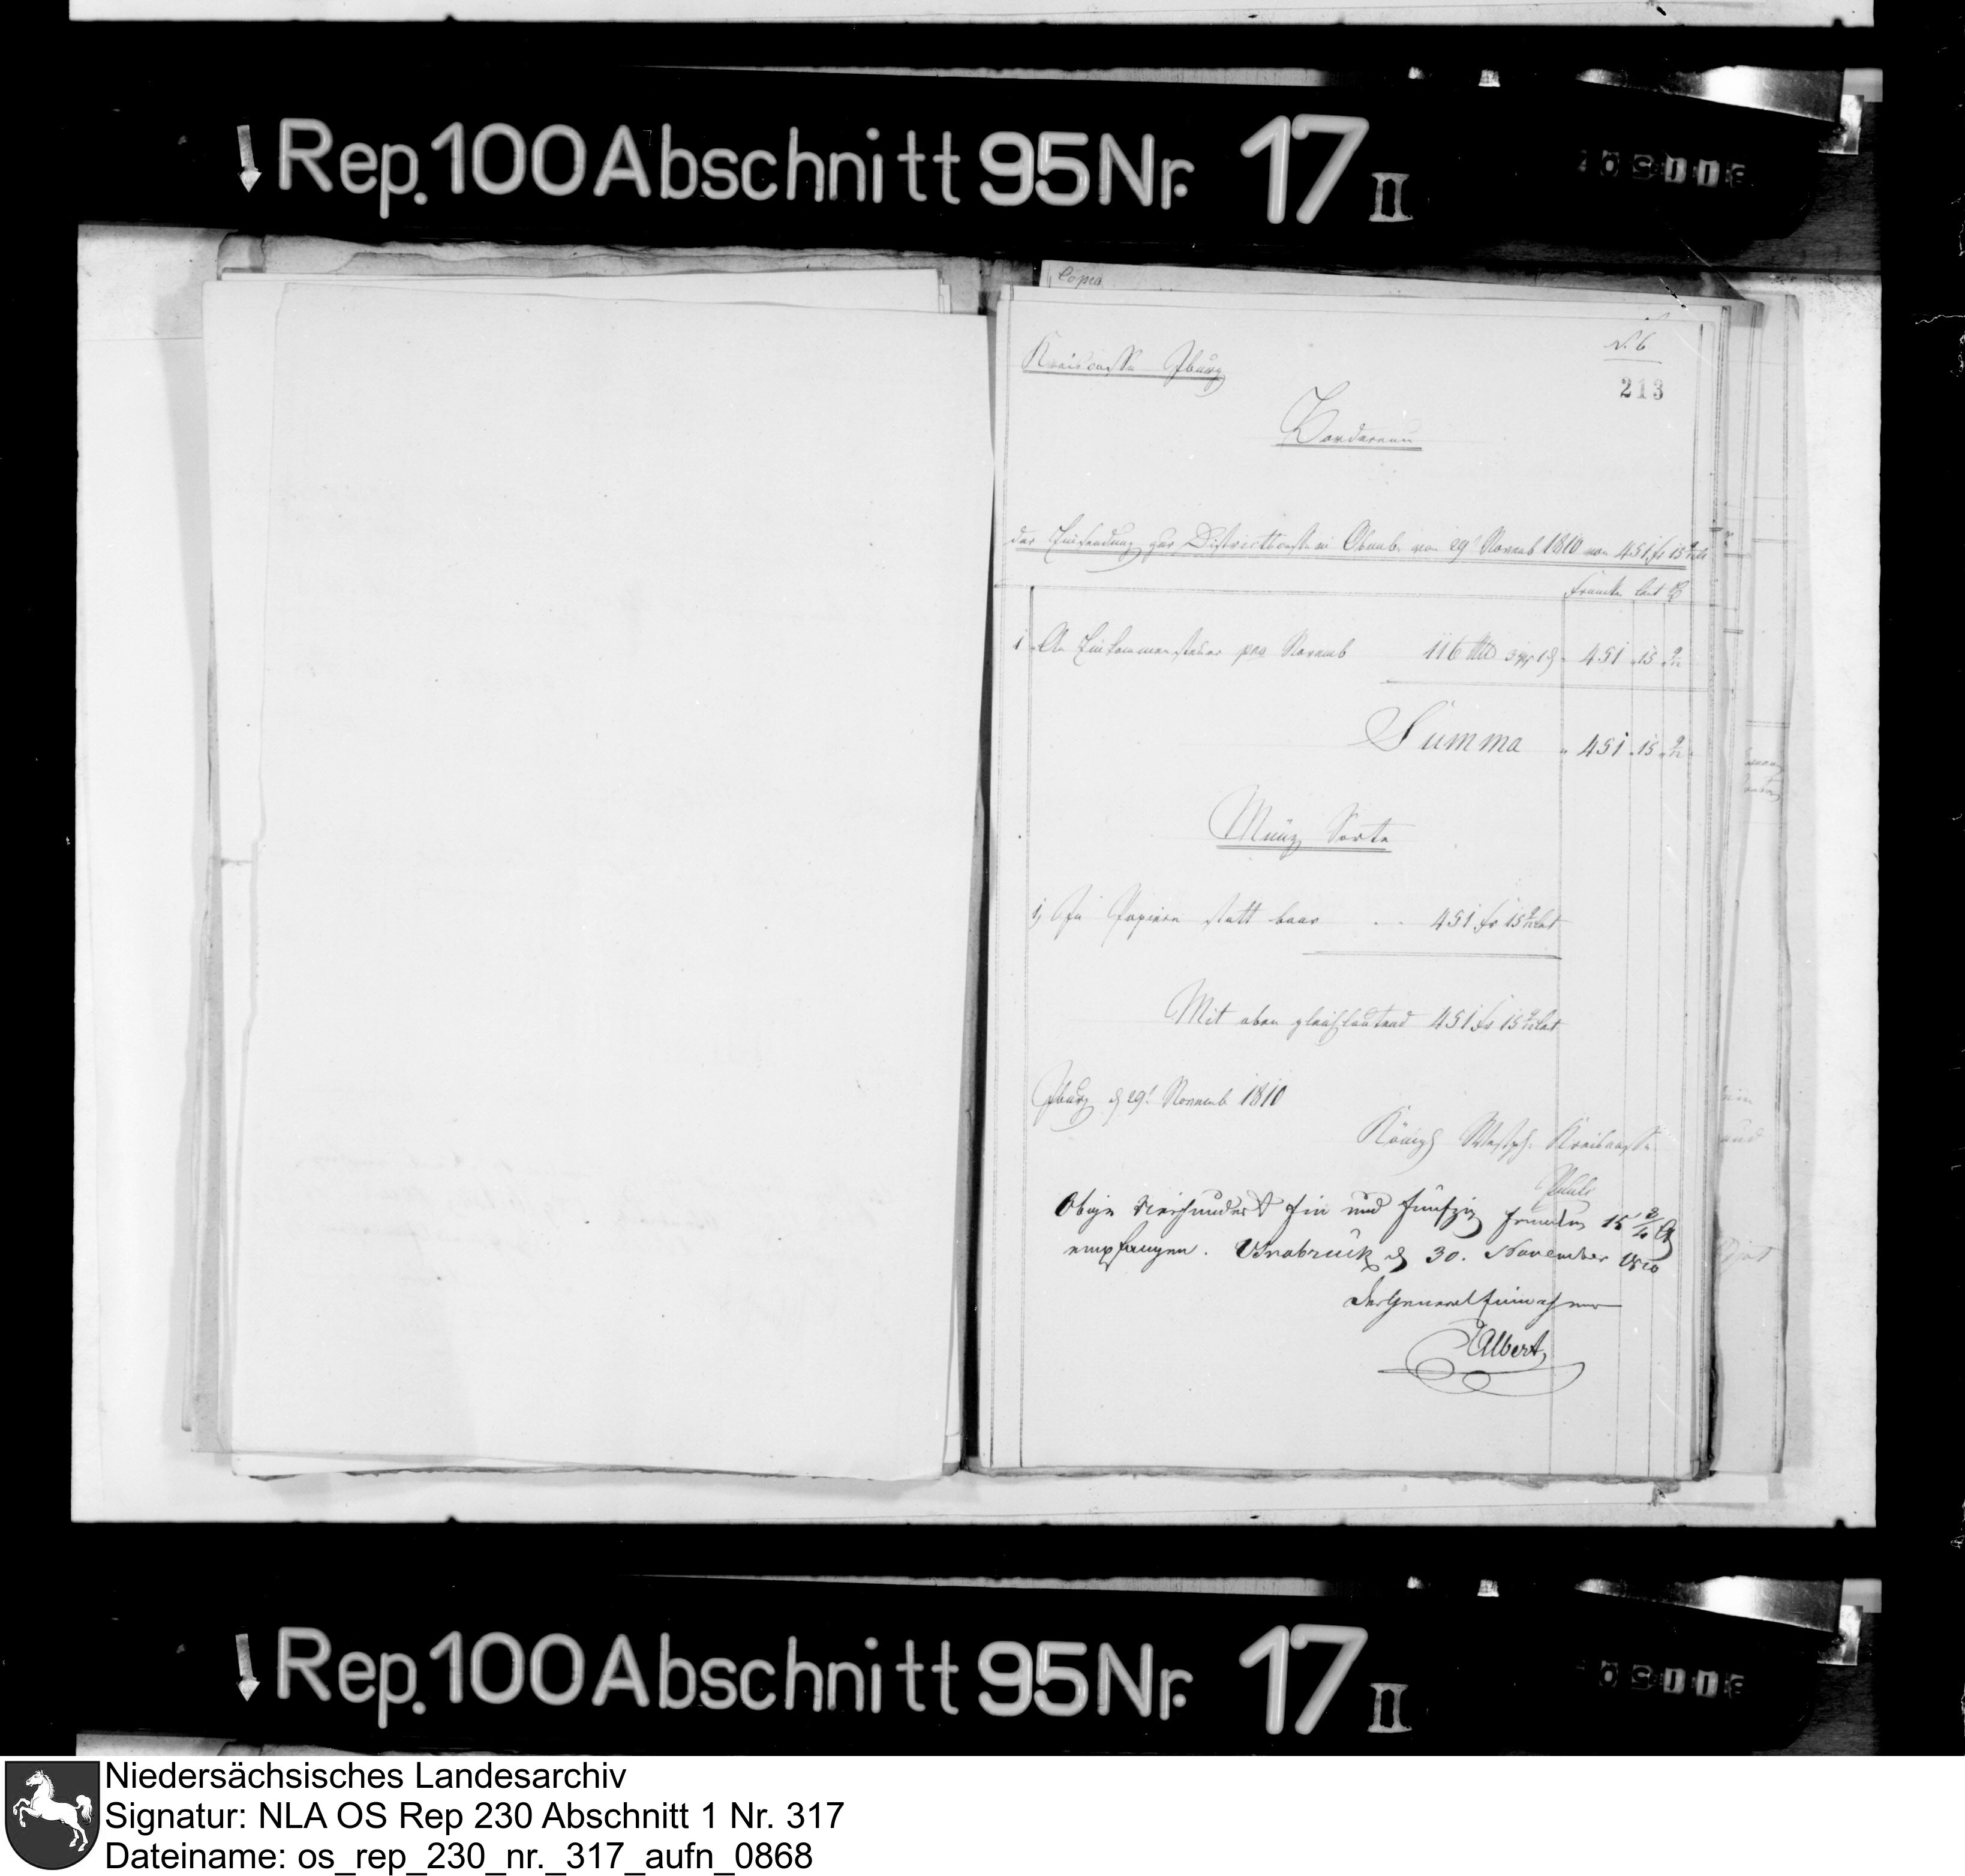 ↓ Rep. 100 Abschnitt 95 Nr. 17 II
Copia
No. 6
Kreiscasse Iburg
213
Bordereau
der Einsendung zur Districtscasse in Osnab. vom 29t Novemb 1810 von 451 fr 15 9/12 Ct
Franken Cent
1 An Einkommensteuer pro Novemb 116 Rtl 3 ggr 1 d 451 15 9/12
Summa 451 15 9/12
Münz Sorte
1, In Papieren statt baar . . 451 fr 15 9/12 Cent
Mit oben gleichlautend 451 fr 15 9/12 Cent
Iburg d 29t Novemb 1810
Königl Westph. Kreiscasse
Obige vierhundert Ein und fünfzig Franken 15
empfangen. Osnabrück d 30. November 1810
Der General Einnehmer
Albert
↓ Rep. 100 Abschnitt 95 Nr. 17 II
Niedersächsisches Landesarchiv
Signatur: NLA OS Rep 230 Abschnitt 1 Nr. 317
Dateiname: os_rep_230_nr._317_aufn_0868